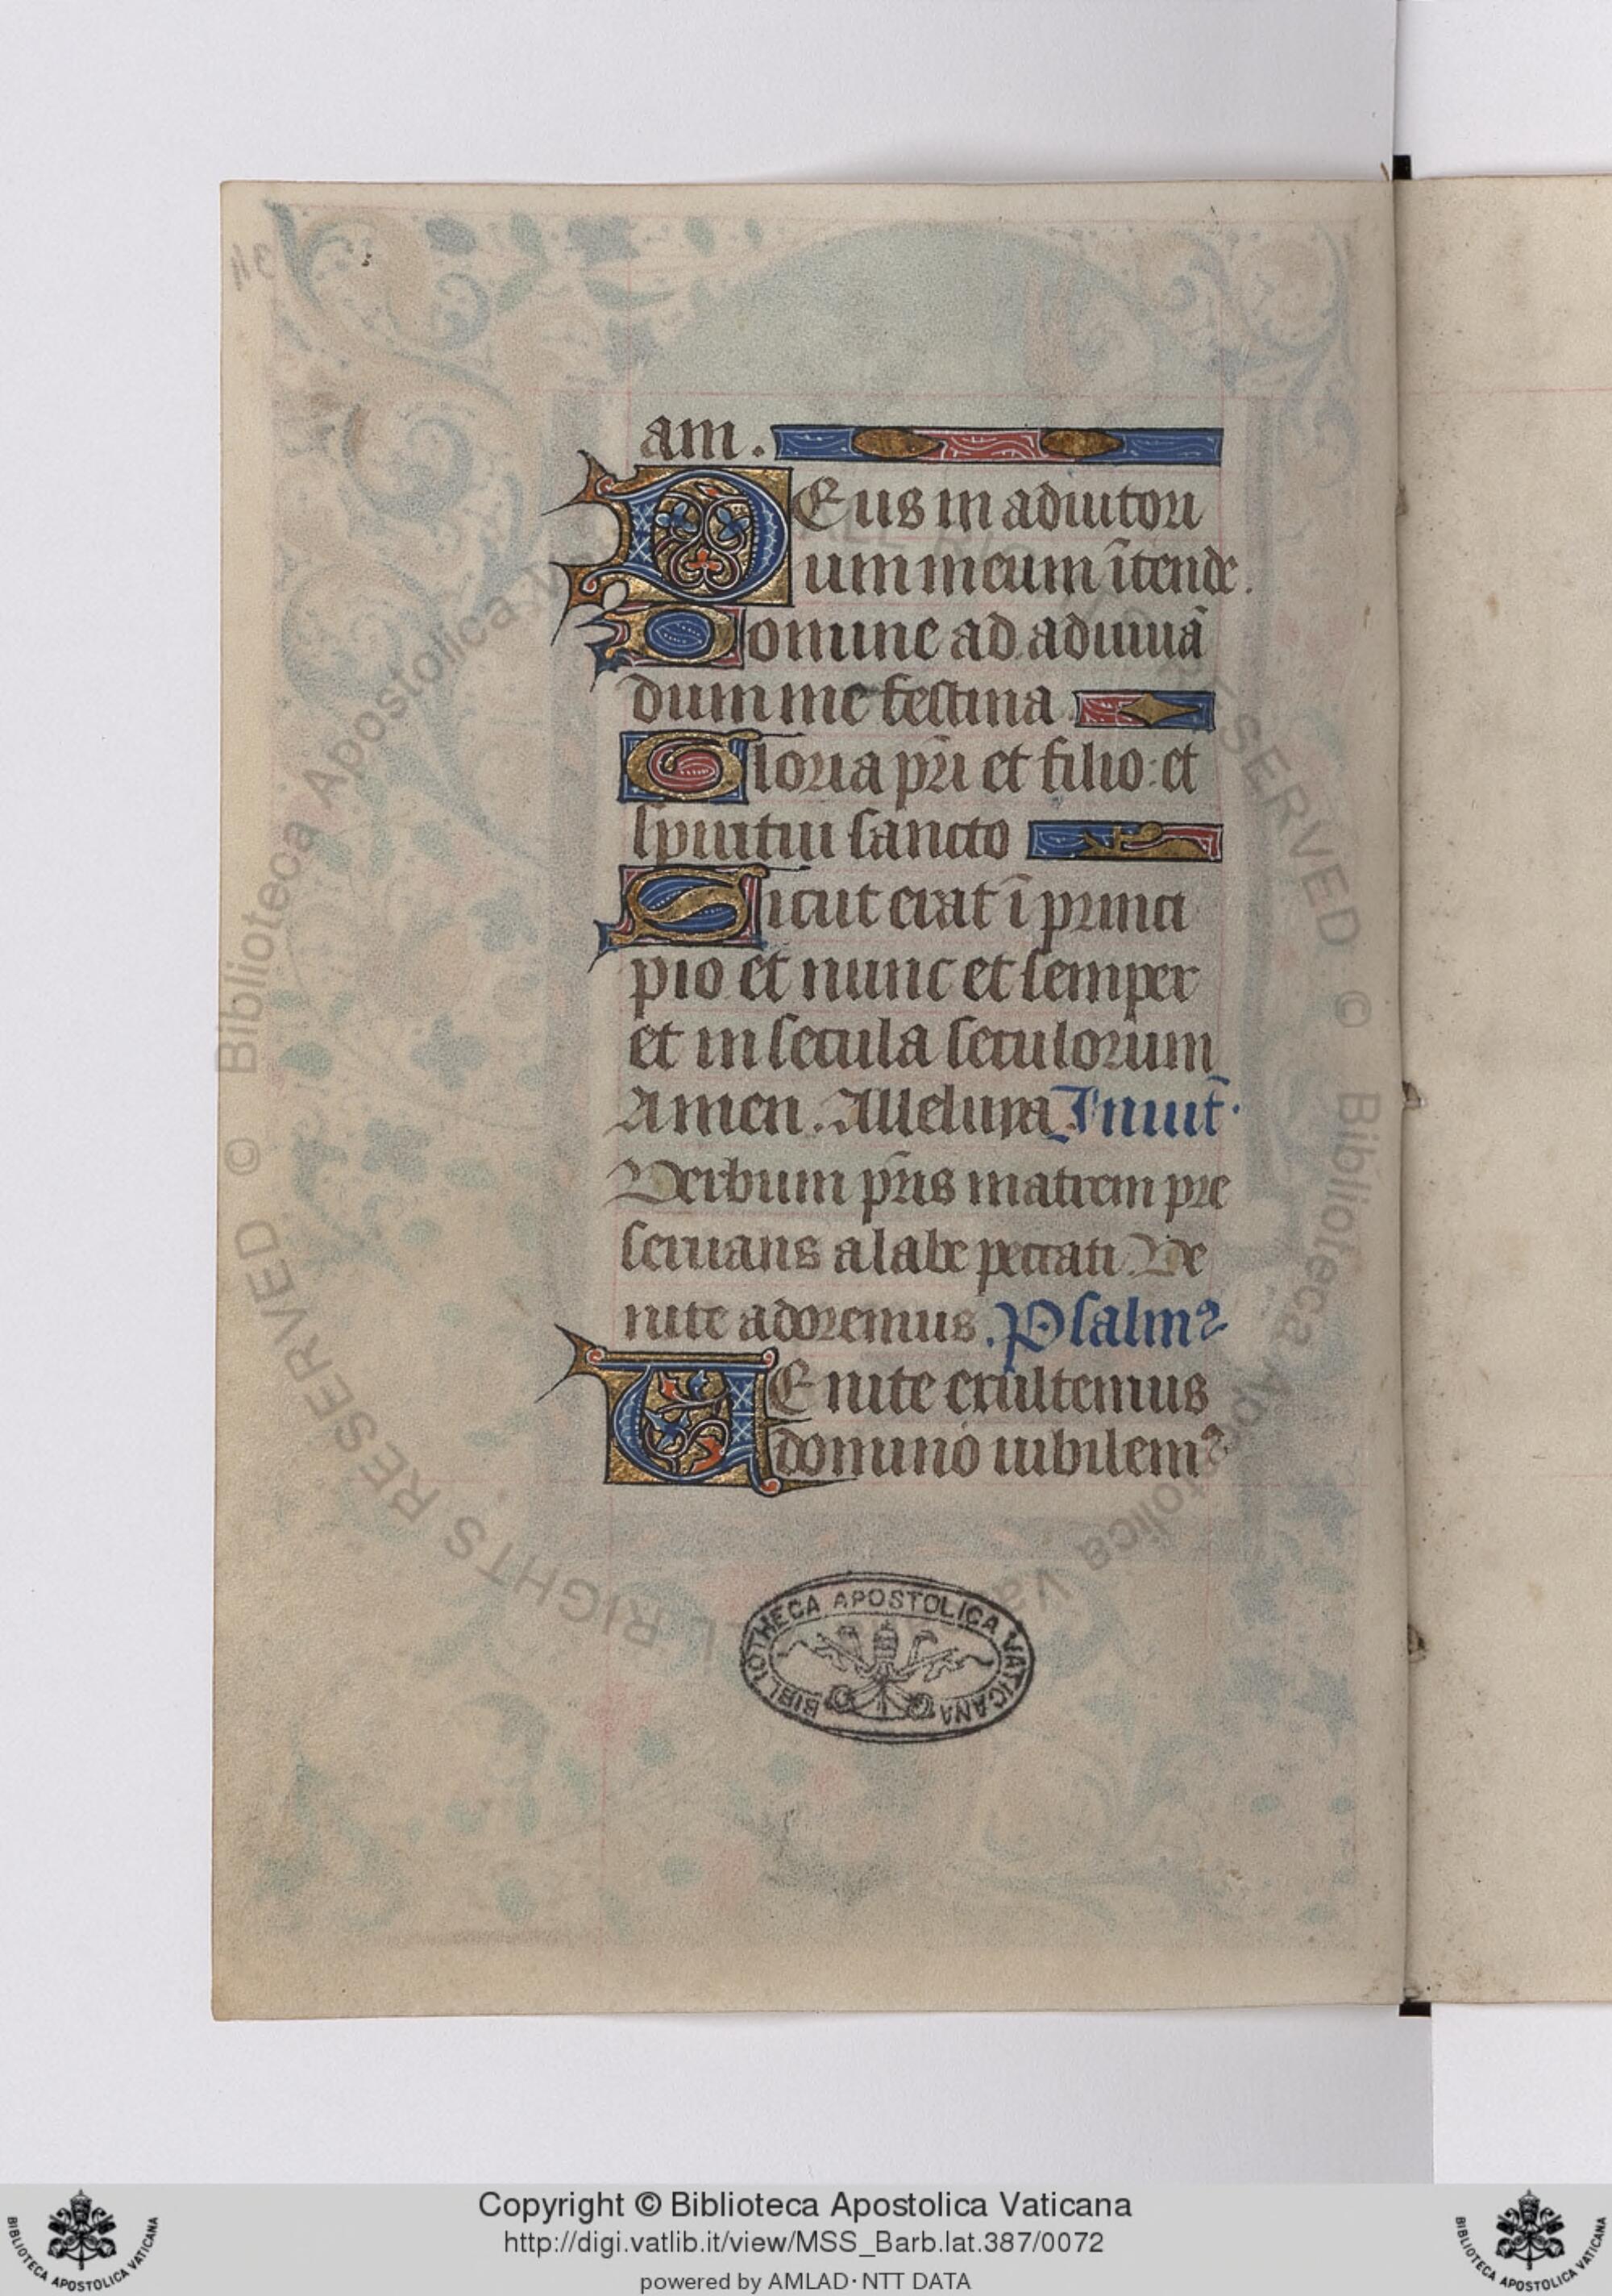 am.
DEus in adiutori
um meum ĩtende.
Domine ad adiuuã
dum me festina
Gloria pr̃i et filio: et
spiritui sancto
Sicut erat ĩ princi
pio et nunc et semper
et in secula seculorum
Amen. Alleluya Inuit̃.
Verbum pr̃is matrem pre
seruans a labe peccati. Ve
nite adoremus. Psalmꝰ
VEnite exultemus
domino iubilemꝰ
BIBLIOTHECA APOSTOLICA VATICANA
© Biblioteca Apostolica Vaticana ALL RIGHTS RESERVED
© Biblioteca Apostolica Vaticana ALL RIGHTS RESERVED
Copyright © Biblioteca Apostolica Vaticana
http://digi.vatlib.it/view/MSS_Barb.lat.387/0072
powered by AMLAD·NTT DATA
BIBLIOTECA APOSTOLICA VATICANA
BIBLIOTECA APOSTOLICA VATICANA